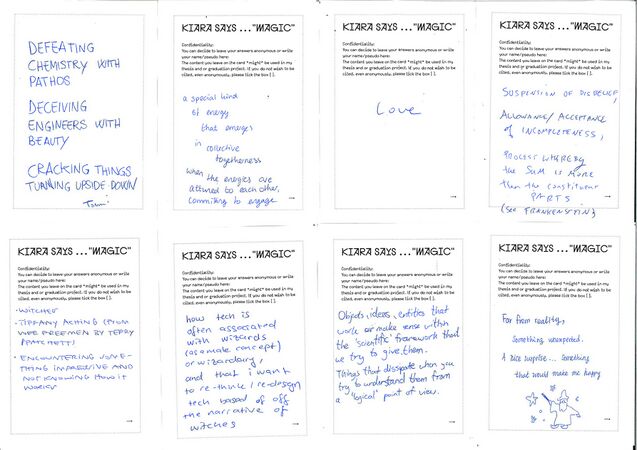 DEFEATING
CHEMISTRY WITH
PATHOS
DECEIVING
ENGINEERS WITH
BEAUTY
CRACKING THINGS
TURNING UPSIDE DOWN
KIARA SAYS ..."MAGIC"
Confidentiality:
You can decide to leave your answers anonymous or write
your name/pseudo here:
The content you leave on the card *might* be used in my
thesis and or graduation project. If you do not wish to be
cited, even anonymously, please tick the box [ ].
a special kind
of energy
that emerges
in collective
togetherness
when the energies are
attuned to each other,
committing to engage
→
KIARA SAYS ..."MAGIC"
Confidentiality:
You can decide to leave your answers anonymous or write
your name/pseudo here:
The content you leave on the card *might* be used in my
thesis and or graduation project. If you do not wish to be
cited, even anonymously, please tick the box [ ].
Love
→
KIARA SAYS ..."MAGIC"
Confidentiality:
You can decide to leave your answers anonymous or write
your name/pseudo here:
The content you leave on the card *might* be used in my
thesis and or graduation project. If you do not wish to be
cited, even anonymously, please tick the box [ ].
SUSPENSION OF DISBELIEF,
ALLOWANCE/ ACCEPTANCE
of INCOMPLETENESS,
PROCESS WHEREBY
the SUM IS MORE
then the constituent
PARTS
(see FRANKENSTEIN)
→
KIARA SAYS ..."MAGIC"
Confidentiality:
You can decide to leave your answers anonymous or write
your name/pseudo here:
The content you leave on the card *might* be used in my
thesis and or graduation project. If you do not wish to be
cited, even anonymously, please tick the box [ ].
• WITCHES
• TIFFANY ACHING (FROM
WEE FREEMEN BY TERRY
PRATCHETT)
• ENCOUNTERING SOME-
THING IMPRESSIVE AND
NOT KNOWING HOW IT
WORKS
→
KIARA SAYS ..."MAGIC"
Confidentiality:
You can decide to leave your answers anonymous or write
your name/pseudo here:
The content you leave on the card *might* be used in my
thesis and or graduation project. If you do not wish to be
cited, even anonymously, please tick the box [ ].
how tech is
often associated
with wizards
(as a male concept)
or wizardry,
and that i want
to re-think/re-design
tech based of off
the narrative of
witches
→
KIARA SAYS ..."MAGIC"
Confidentiality:
You can decide to leave your answers anonymous or write
your name/pseudo here:
The content you leave on the card *might* be used in my
thesis and or graduation project. If you do not wish to be
cited, even anonymously, please tick the box [ ].
Objects, ideas, entities that
work or make sense within
the 'scientific' framework that
we try to give them.
Things that dissipate when you
try to understand them from
a "logical" point of view.
→
KIARA SAYS ..."MAGIC"
Confidentiality:
You can decide to leave your answers anonymous or write
your name/pseudo here:
The content you leave on the card *might* be used in my
thesis and or graduation project. If you do not wish to be
cited, even anonymously, please tick the box [ ].
Far from reality,
Something unexpected.
A nice surprise... Something
that would make me happy
→